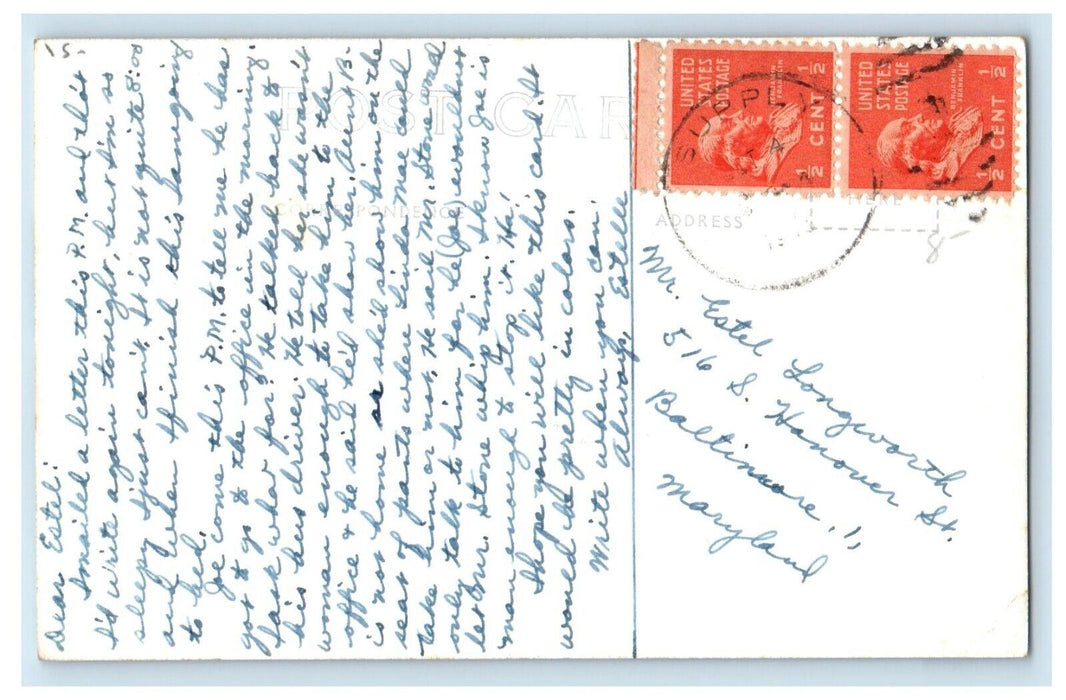 15-
POST CAR
CORRESPONDENCE
ADDRESS
HERE
8
UNITED STATES POSTAGE
BENJAMIN FRANKLIN
1/2 CENT 1/2
UNITED STATES POSTAGE
BENJAMIN FRANKLIN
1/2 CENT 1/2
Dear Estel:
I mailed a letter this P.M. and tho't
I'd write again tonight, but I'm so
sleepy I just can't. It is not quite 8:00
and when I finish this I am going
to bed.
Joe come this P.M. to tell me he has
got to go to the office in the morning
& ask what for. He talked back to
his bus driver. He told her she wasn't
woman enough to take him to the
office & he said he'd show her. Aunt B-
is not home so she'd shown him on the
seat of pants where Linda Mae could
take him or not. He said Mr. Stone would
only talk to him for he (Joe) would not
let Mr. Stone whip him. I know Joe is
man enough to stop it. Ha!
I hope you will like this card. It
would be pretty in colors.
Write when you can.
Always, Estelle
Mr. Estel Longworth
516 S. Hanover St.
Baltimore,
Maryland